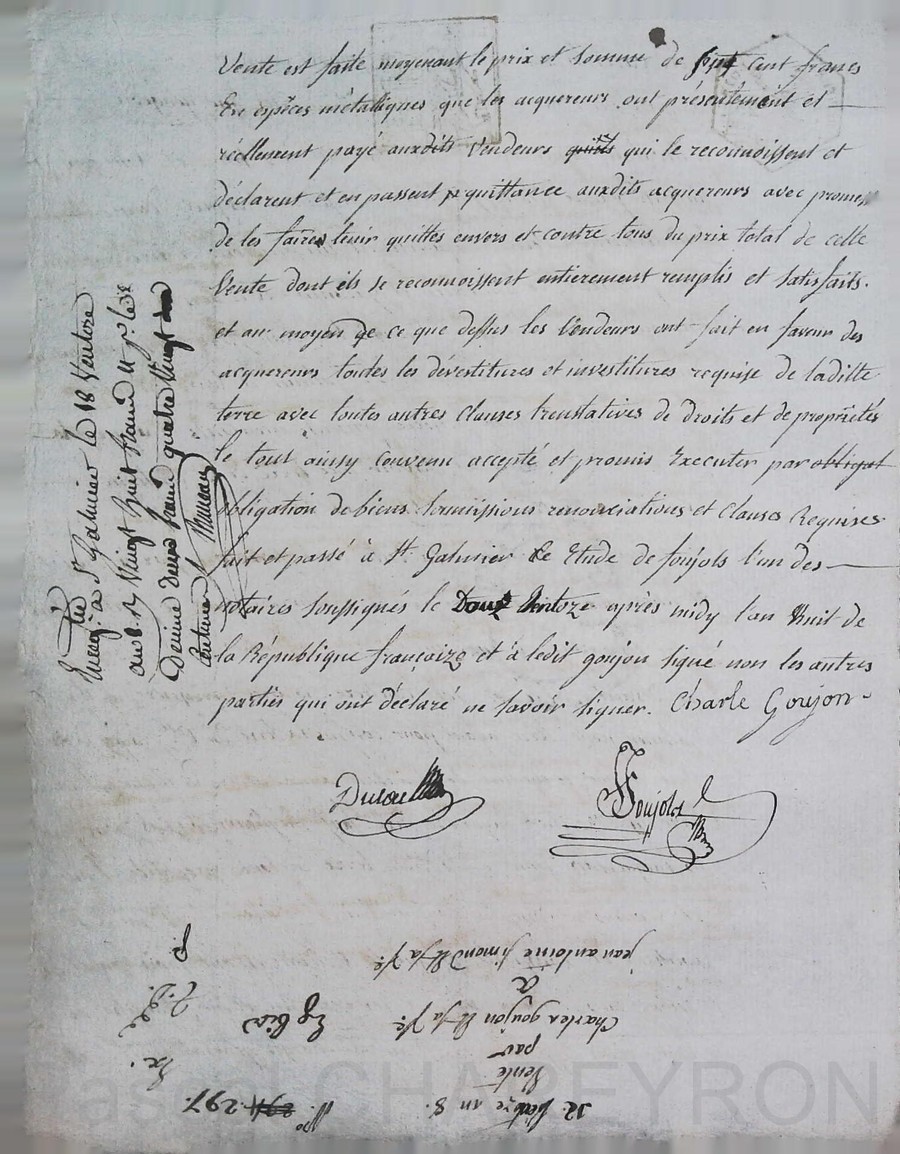 Vente est faite moyenant le prix et somme de sept cent francs
En espèces métalliques que les acquereurs ont présentement et
réellement payé auxdits Vendeurs qui le reconnoissent et
déclarent et en passent quittance auxdits acquereurs avec promesse
de les faire tenir quittes envers et contre tous du prix total de cette
Vente dont ils se reconnoissent entierement remplis et satisfaits.
et au moyen de ce que dessus les Vendeurs ont fait en faveur des
acquereurs toutes les dévestitures et investitures requise de laditte
terre avec toutes autres Clauses translatives de droits et de propriétés
le tout ainsy Convenu accepté et promis Executer par obligat
obligation de biens soumissions renonciations et Clauses Requises
fait et passé à St. Galmier Etude de foujols l'un des
notaires soussignés le Douze Ventoze après midy l'an huit de
la République françoize et à ledit goujon signé non les autres
parties qui ont déclaré ne savoir signer. Charle Goujon
Foujols
à St Galmier le 18 Ventose
an 8. Vingt huit franc
Decime deux franc quatre Vingt
Centimes
12. Ventoze an 8. N.° 294. 297.
Vente Ex.
par
Charles goujon & sa fe.
à
jean antoine simond & sa fe.